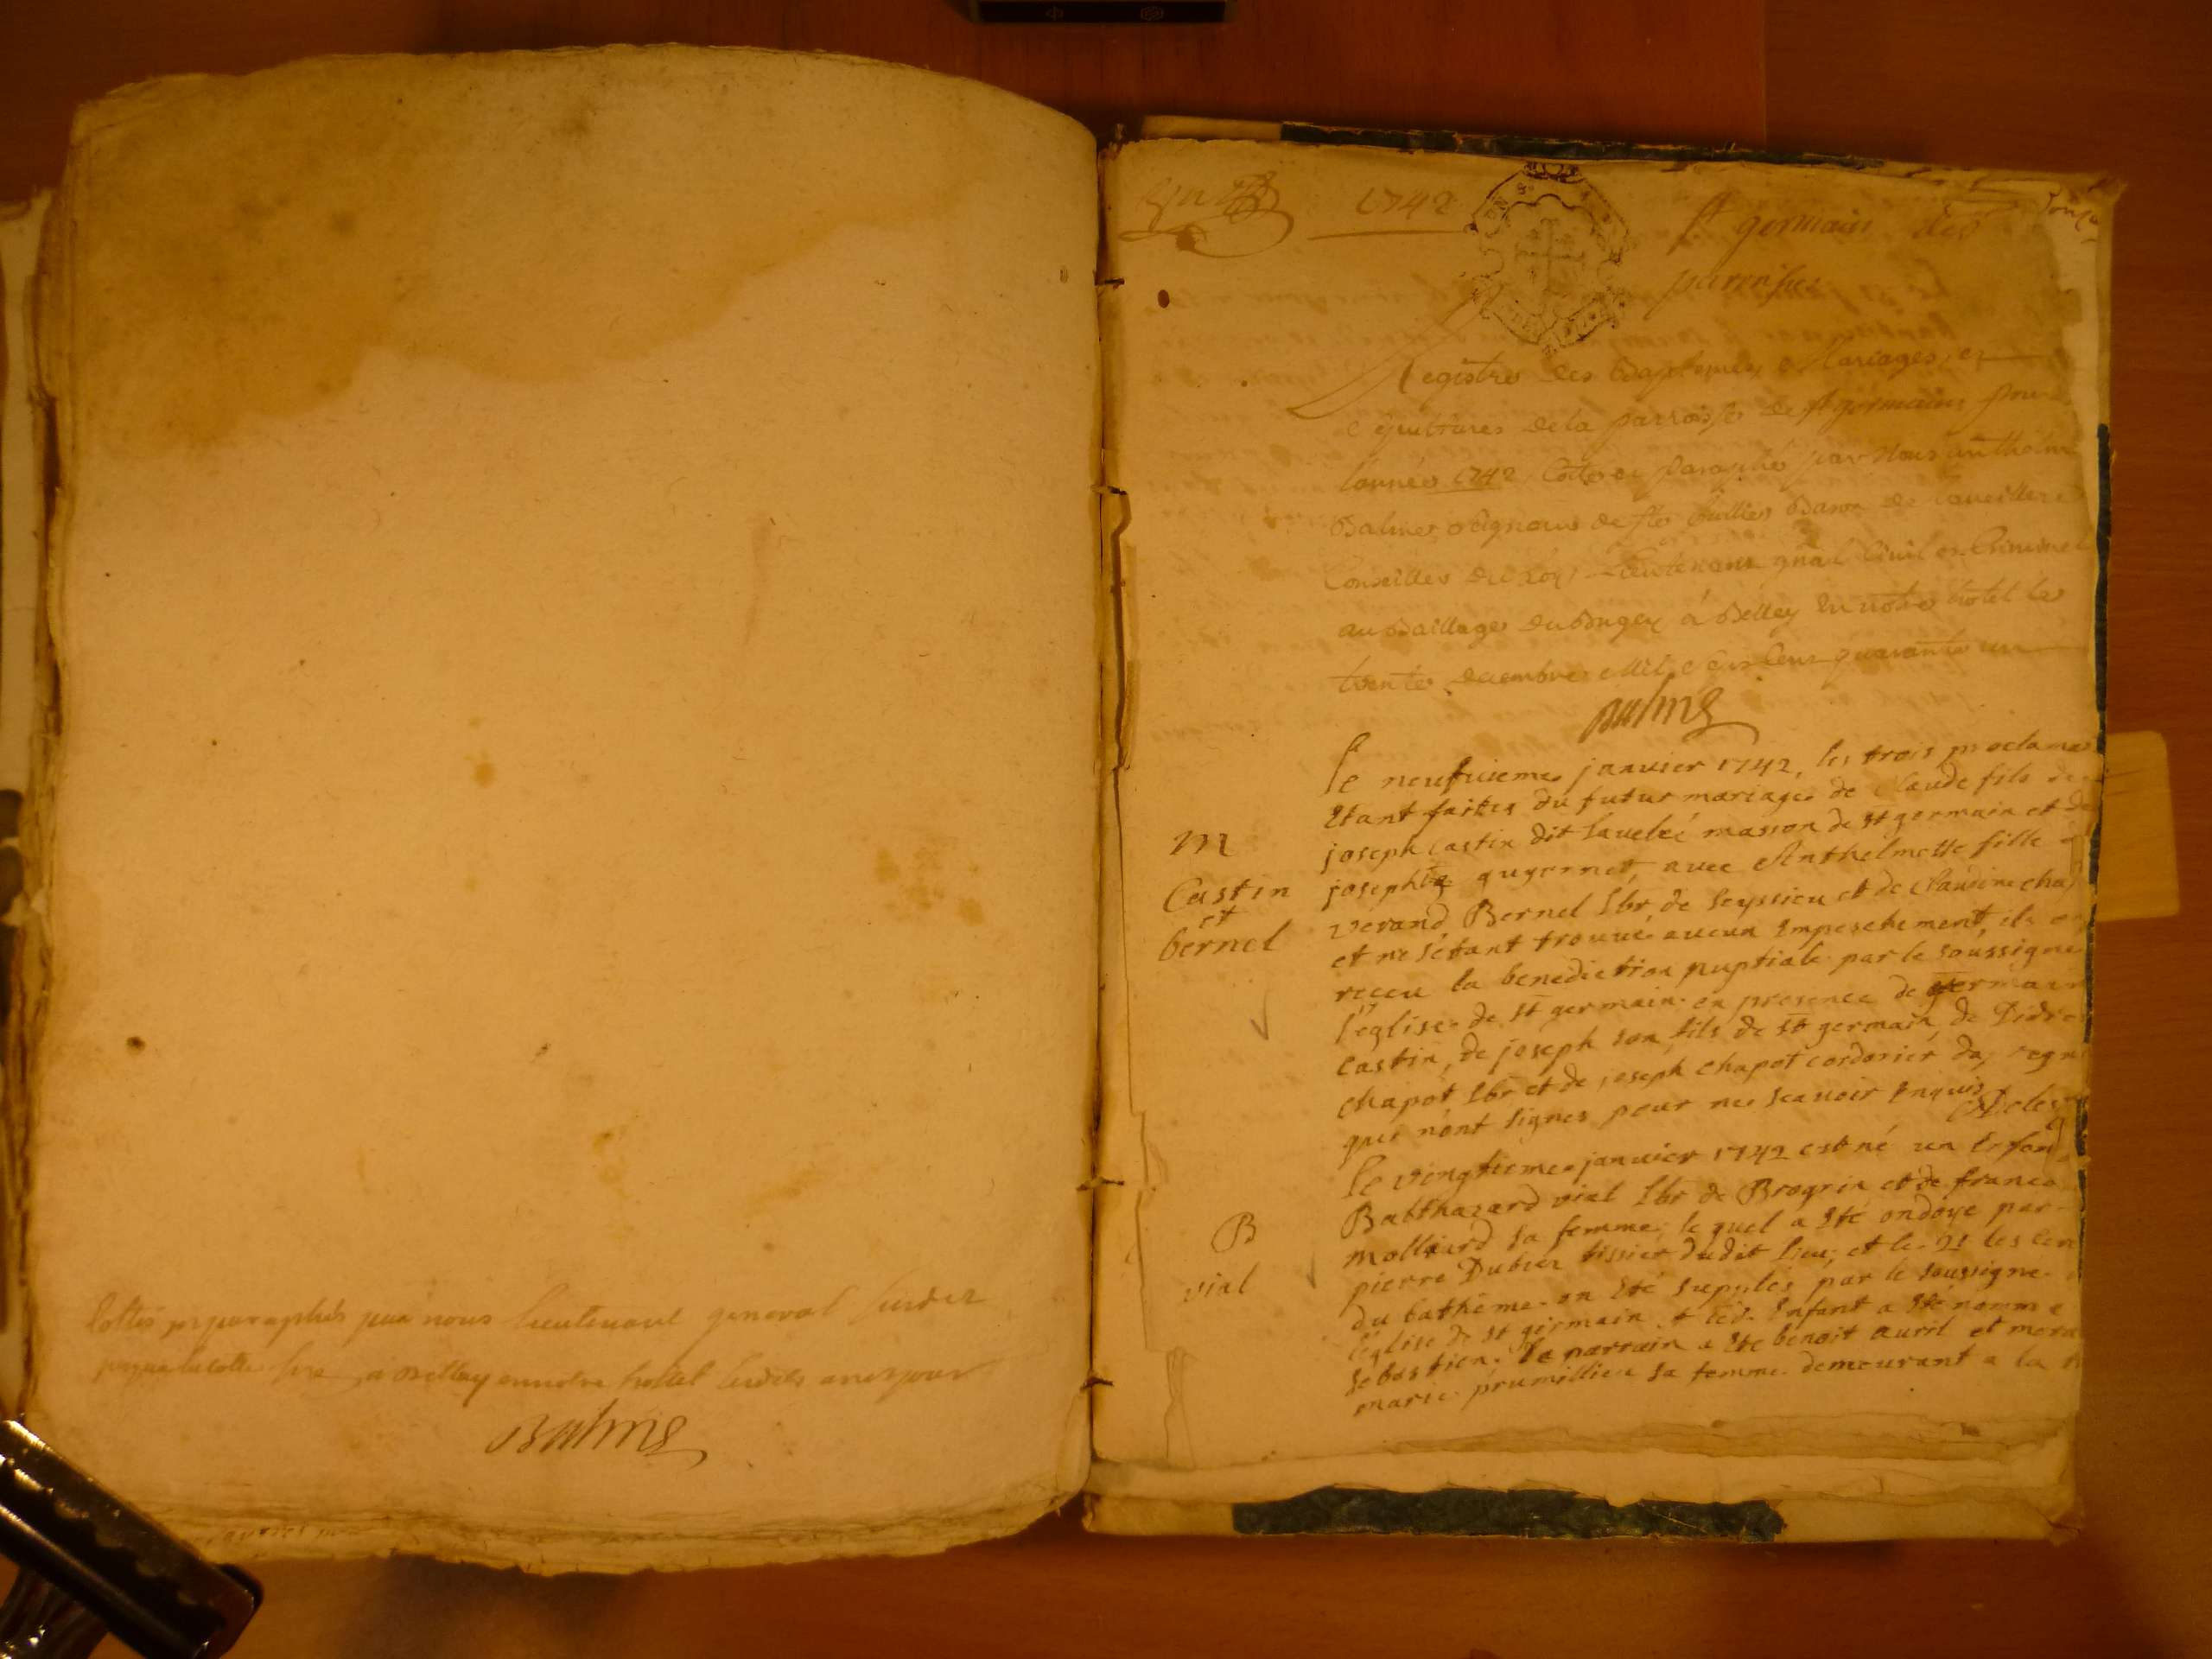 Cottés et paraphés par nous lieutenant general susdit
a Belley en notre hostel lesdits an et jour
Balme
1742
St germain des
paroisses
Registre des Baptemes, Mariages, et
Sepultures de la parroisse de St germain pour
l'année 1742 Cotté et Paraphé par Nous anthelme
Balme Seigneur de Ste Jullie Baron de
Conseiller du Roy Lieutenant gnal Civil et Criminel
au Baillage du Bugey à Belley En notre hotel le
trente decembre Mil Sept Cent quarante un
Balme
M
Castin
et
bernel
le neufuieme janvier 1742, les trois proclama
Etant faites du futur mariage de Claude fils de
joseph Castin dit masson de St germain et de
joseph guyernet, avec Anthelmette fille
verand Bernel lbr de seyssieu et de Claudine
et ne sétant trouvé aucun Empeschement, ils
receu la benediction nuptiale par le soussigne
l'eglise de St germain en presence de germain
Castin, de joseph son fils de St germain, de
chapot lbr et de joseph chapot cordonier
qui n'ont signes pour ne scavoir Enquis
B
vial
le vingtieme janvier 1742 est né un Enfan
Balthazard vial lbr de Brognin et de france
molliard sa femme, le quel a Eté ondoye par
pierre Dubier tissier dudit lieu, et le 21 les cere
du bathême on Eté suppléés par le soussigne
l'eglise de St germain et led. Enfant a Eté nomme
sebastien. le parrain a Eté benoit avril et mara
marie prumillieu sa femme demeurant a la